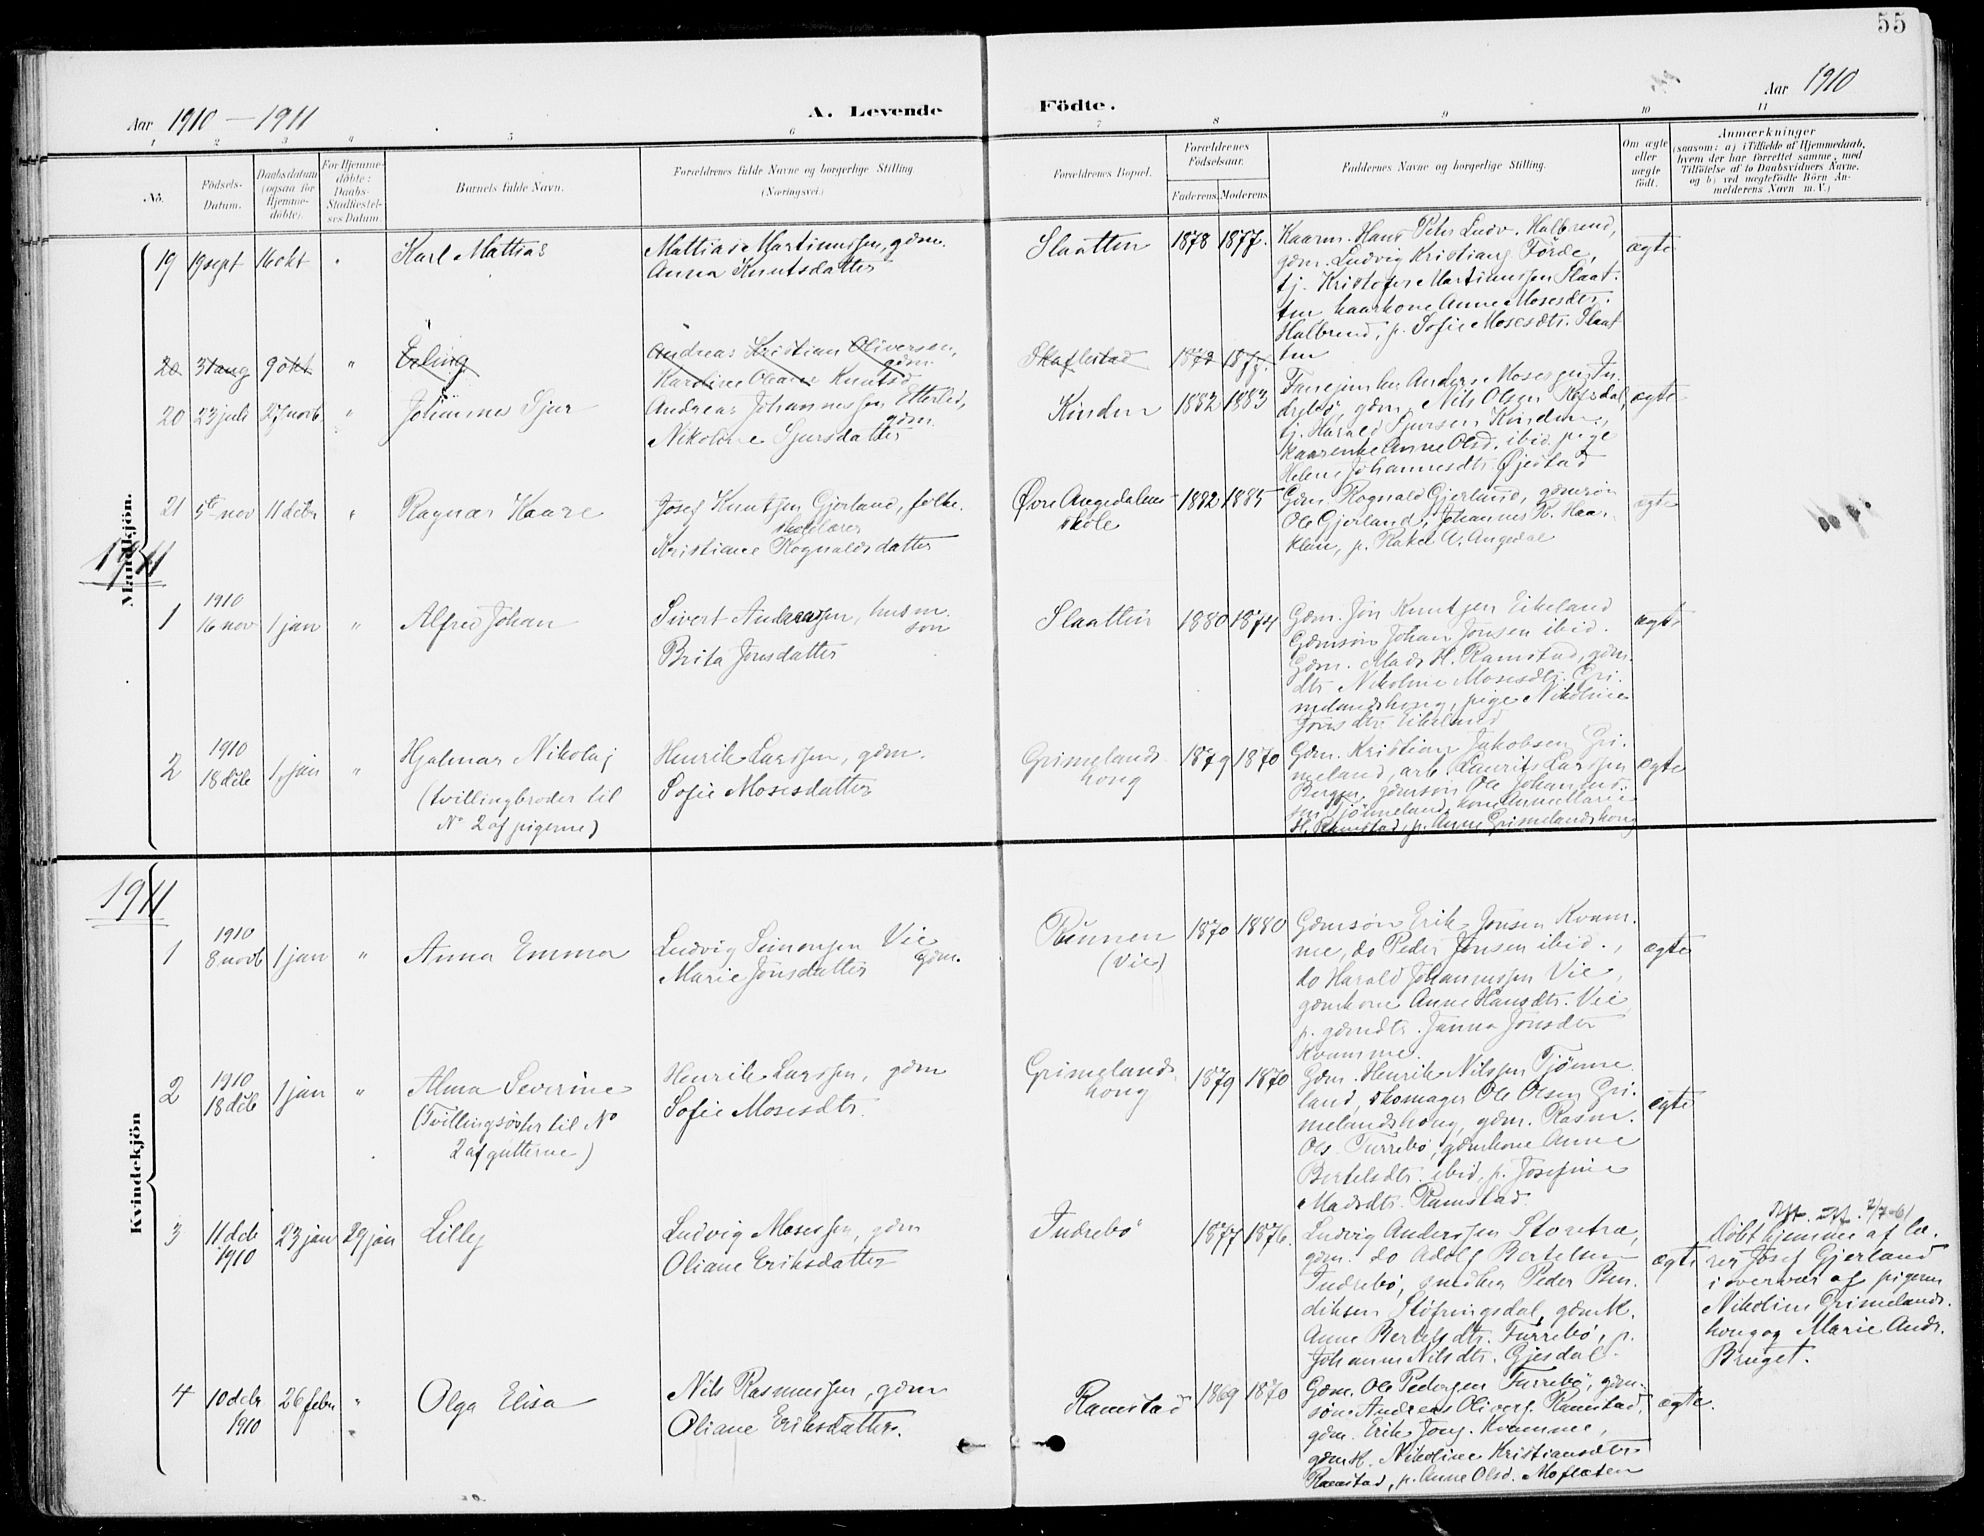 55
Aar 1910 – 1911
A. Levende
Födte.
Aar 1910
1 2 3 4 5 6 7 8 9 10 11
No.
Födsels-Datum.
Daabsdatum (ogsaa for Hjemme-döbte).
For Hjemme-döbte: Daabs-Stadfæstel-ses Datum.
Barnets fulde Navn.
Forældrenes fulde Navne og borgerlige Stilling
(Næringsvei.)
Forældrenes Bopæl.
Forældrenes Födselsaar.
Faderens. Moderens.
Faddernes Navne og borgerlige Stilling.
Om ægte eller uægte født.
Anmærkninger
(saasom: a) i Tilfælde af Hjemmedaab, hvem der har forrettet samme, med Tilföielse af to Daabsvidners Navne, og b) ved uægtefödte Börn Anmelderens Navn m. V.)
Mandkjön.
19 19 sept 16 okt " Karl Mattias
Mattias Martinussen, gdm.
Anna Knutsdatter
Slaatten 1878 1877.
Kaarm. Hans Peter Ludv. Halbrend,
gdm. Ludvig Kristians Förde,
tj. Kristofer Martinussen Slaat-
ten kaarkone Anne Mosesdtr.
Halbrend, p. Sofie Mosesdtr. Slaat
ten
ægte
20 31 aug 9 okt " Erling
Andreas Kristian Oliversen,
gdm.
Karoline Oliane Knutsd
Skaflestad
20 23 juli 27 novb " Johannes Sjur
Andreas Johannessen Etterlid,
gdm.
Nikoline Sjursdatter
Kinden 1882 1883
drebö, gdm. Nils Olsen Refsdal,
tj. Harald Sjursen Kinden,
Kaarenke Anne Olsd. ibid. pige
Helene Johannesdtr. Øjestad
ægte
21 5te nov 11 debr " Ragnar Kaare
Josef Knutsen Gjerland, folke-
skolelærer
Kristiane Rognaldsdatter
Øvre Angedalens
skole
1882 1885
Gdm. Rognald Gjerland, gdmsøn
Ole Gjerland, Johannes K. Haa-
klen, p. Rakel A. Angedal
ægte
1911
1 1910
16 nov 1 jan " Alfred Johan
Sivert Andersen, husm.
søn
Brita Jonsdatter
Slaatten 1880 1874
Gdm. Jon Knutsen Eikeland
Gdmsøn Johan Jonsen ibid.
Gdm. Mads H. Ramstad, gdm.
dtr Nikoline Mosesdtr. Gri-
melandshong, pige Nikoline
Jonsdtr Eikeland
ægte
2 1910
18 debr 1 jan " Hjalmar Nikolaj
(tvillingbroder til
No 2 af pigerne)
Henrik Larssen, gdm.
Sofie Mosesdatter
Grimelands
hong
1879 1870
Gdm. Kristian Jakobsen Gri-
meland, arb. Laurits Larssen
Bergen, gdmsøn Ole Johan And.
sen Tjönneland, kone Anne Marie
H. Ramstad, p. Anne Grimelandshong
ægte
1911
Kvindekjön
1 1910
8 novb 1 jan " Anna Emma
Ludvig Simonsen Vie
gdm.
Marie Jonsdatter
Rünnen
(Vie)
1870 1880
Gdmsøn Erik Jonsen Kvam-
me, do Peder Jonsen ibid.,
do Harald Johannessen Vie,
gdmkone Anne Hansdtr. Vie
p. gdmdtr. Janna Jonsdtr
Kvamme.
ægte
2 1910
18 debr 1 jan " Alma Severine
(Tvillingsøster til No
2 af gutterne)
Henrik Larssen, gdm
Sofie Mosesdtr.
Grimelands
hong
1879 1870
Gdm. Henrik Nilssen Tjönne-
land, skomager Ole Olsen Gri-
melandshong, gdm. Rasm.
Ols. Furrebö, gdmkone Anne
Bertelsdtr. ibid, p. Josefine
Madsdtr. Ramstad
ægte
3 11 deb
1910 23 jan 29 jan Lilly
Ludvig Mosessen, gdm
Oliane Eriksdatter
Indrebö 1877 1876.
Ludvig Anderssen Storetræ,
gdm. do Adolf Bertelsen
Indrebö, snedker Peder Ben-
diksen Støfringsdal, gdmk.
Anne Bertelsdtr. Furrebö, p.
Johanne Nilsdtr. Gjesdal.
ægte
2/7-61
Döbt hjemme af læ-
rer Josef Gjerland
i overvær af pigerne
Nikoline Grimelands-
hong og Marie Ands.
Bruget.
4 10 debr
1910 26 febr " Olga Elisa
Nils Rasmussen, gdm
Oliane Eriksdatter.
Ramstad 1869 1870
Gdm. Ole Pedersen Furrebö, gdm-
søn Andreas Olivers. Ramstad,
gdm. Erik Jons. Kvamme,
gdmk. Nikoline Kristiansdtr
Ramstad, p. Anne Olsd. Moflaten
ægte.